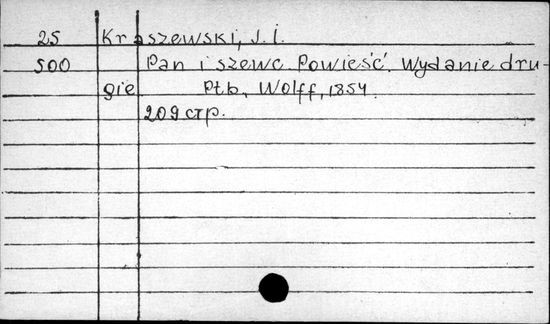 25 Kraszewski, J. I.
500 Pan i szewc. Powieść. Wydanie dru-
gie. Ptb, Wolff, 1854.
209 стр.